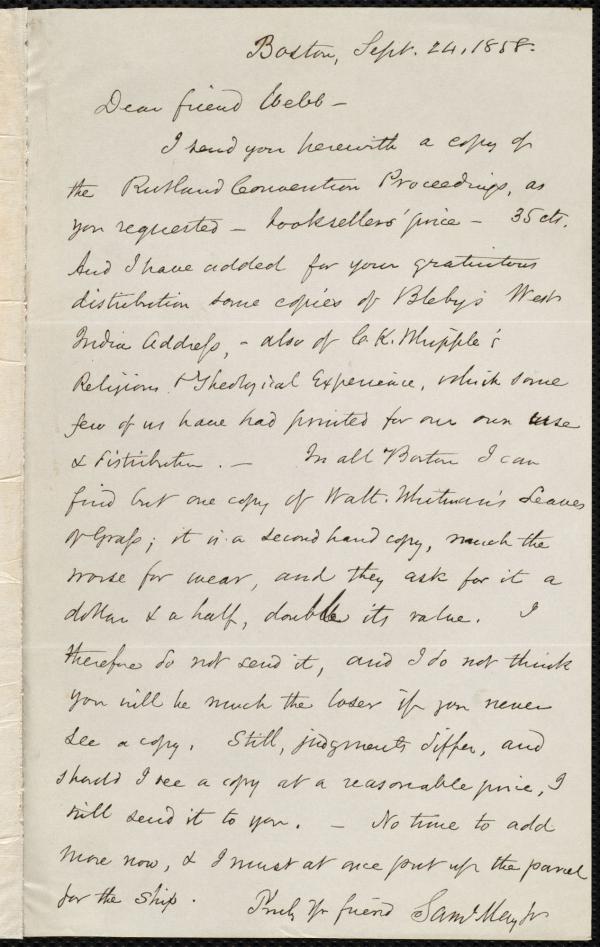 Boston, Sept. 24, 1858.
Dear friend Webb —
I send you herewith a copy of
the Rutland Convention Proceedings, as
you requested — booksellers' price — 35 cts.
And I have added for your gratuitous
distribution some copies of Bleby's West
India Address, — also of C. K. Whipple's
Religious & Theological Experience, which some
few of us have had printed for our own use
& distribution. — In all Boston I can
find but one copy of Walt. Whitman's Leaves
of Grass; it is a second hand copy, much the
worse for wear, and they ask for it a
dollar & a half, double its value. I
therefore do not send it, and I do not think
you will be much the loser if you never
see a copy. Still, judgments differ, and
should I see a copy at a reasonable price, I
will send it to you. — No time to add
more now, & I must at once put up the parcel
for the ship. Truly Yr friend Saml. May Jr